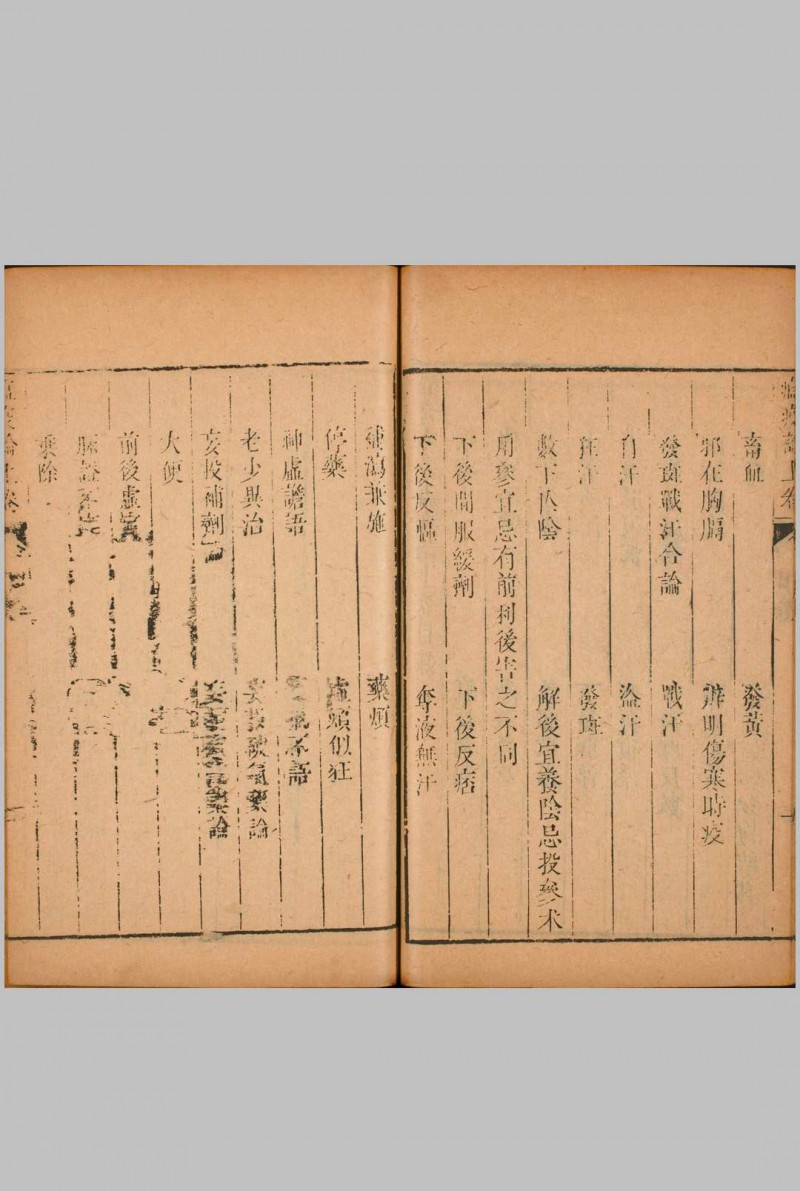 畜血 發黄
邪在胸膈 辨明傷寒時疫
發斑戰汗合論 戰汗
自汗 盗汗
狂汗 發斑
數下亾陰 解後宜養陰忌投參术
用參宜忌有前利後害之不同
下後間服緩劑 下後反痞
下後反嘔 奪液無汗
補瀉兼施 藥煩
停藥 虚煩似狂
神虚譫語 奪氣不語
老少異治 妄投破氣藥論
妄投補劑論 妄投寒凉藥論
大便
前後虚實
脈證不應
乘除